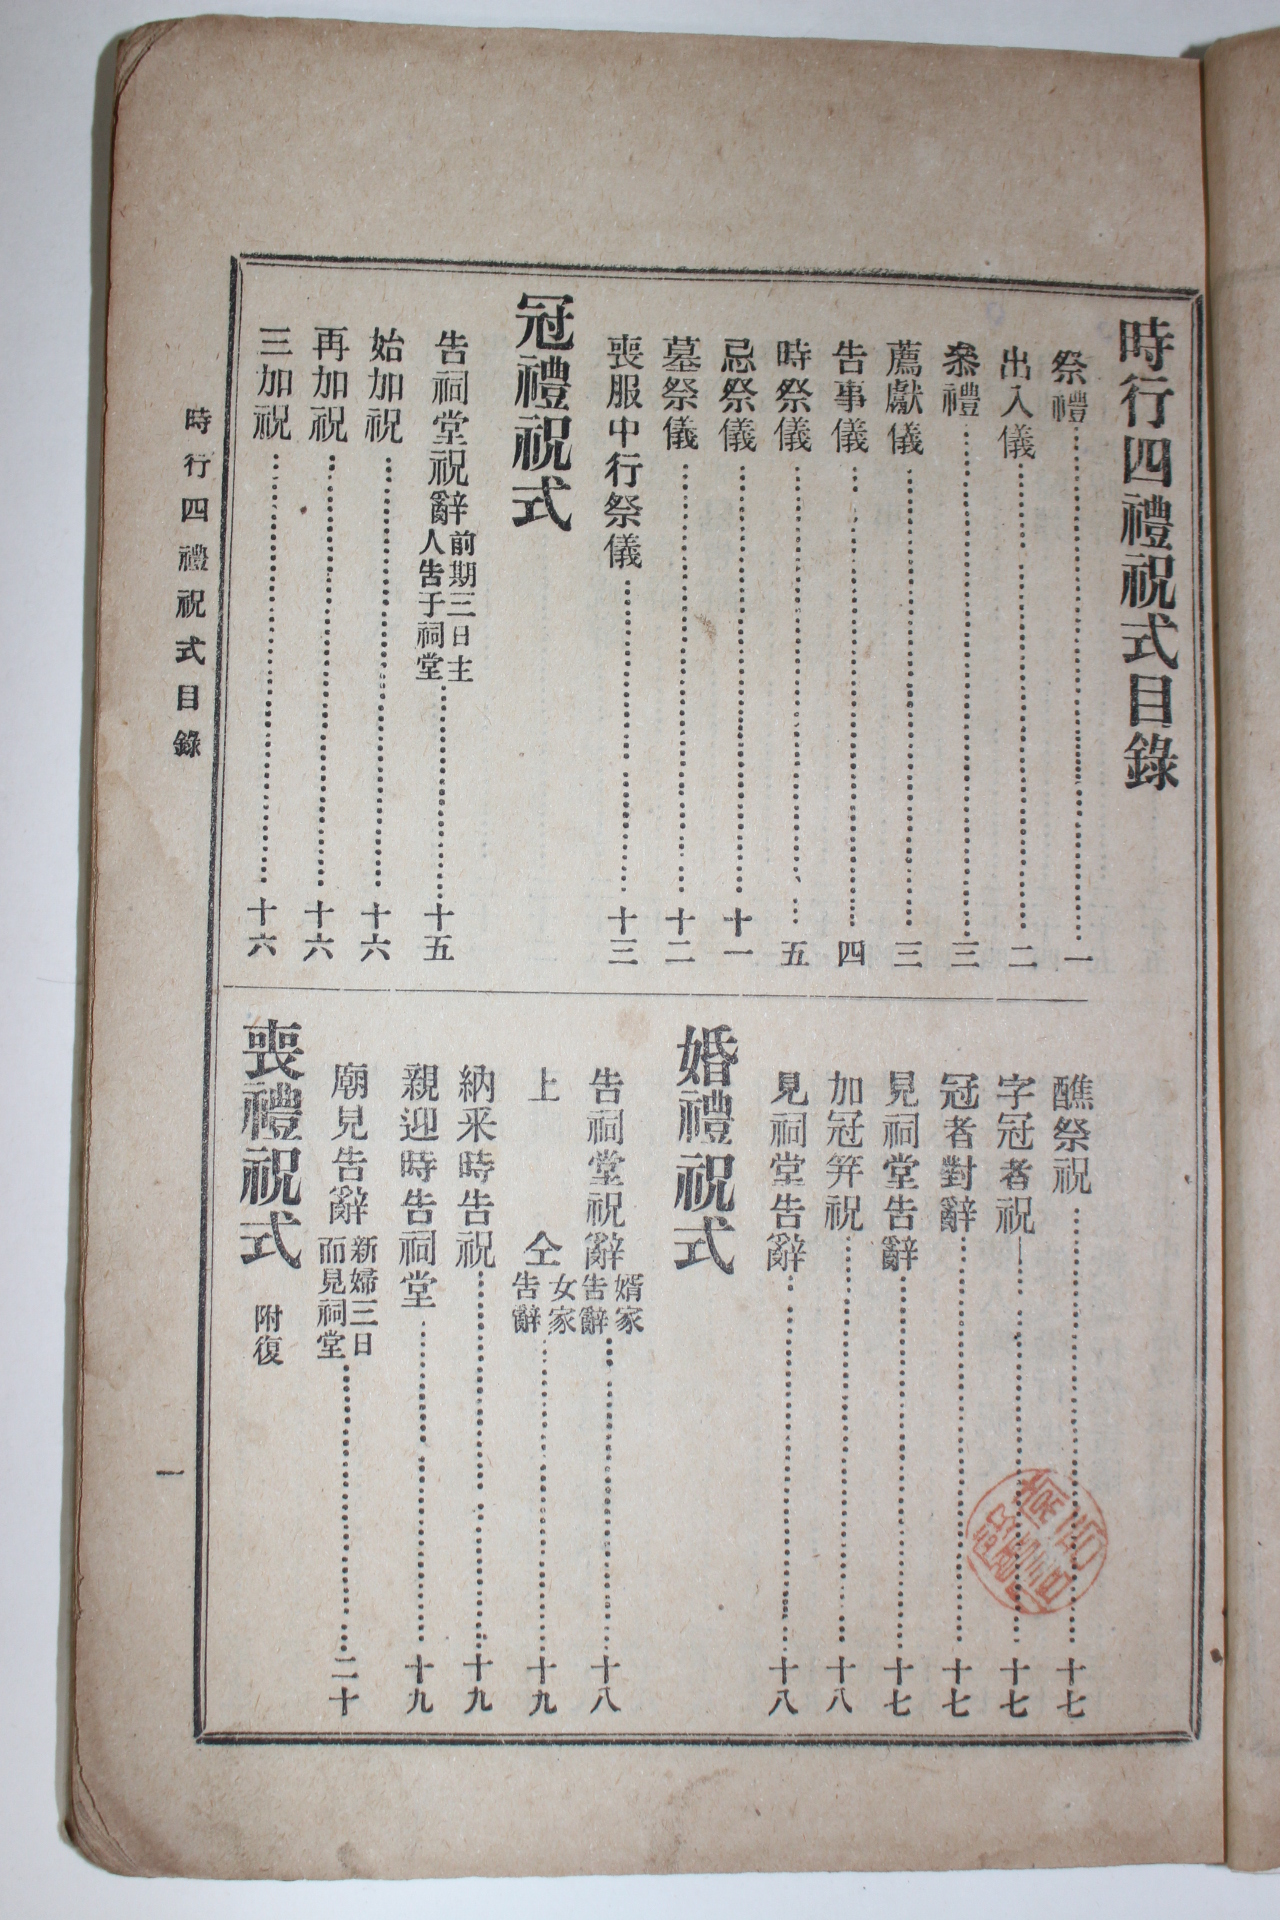 時行四禮祝式目錄
祭禮……一
出入儀……二
叅禮……三
薦獻儀……三
告事儀……四
時祭儀……五
忌祭儀……十一
墓祭儀……十二
喪服中行祭儀……十三
冠禮祝式
告祠堂祝辭前期三日主人告于祠堂……十五
始加祝……十六
再加祝……十六
三加祝……十六
醮祭祝……十七
字冠者祝……十七
冠者對辭……十七
見祠堂告辭……十七
加冠笄祝……十八
見祠堂告辭……十八
婚禮祝式
告祠堂祝辭婿家告辭……十八
上仝女家告辭……十九
納采時告祝……十九
親迎時告祠堂……十九
廟見告辭新婦三日而見祠堂……二十
喪禮祝式 附復
時行四禮祝式目錄
一